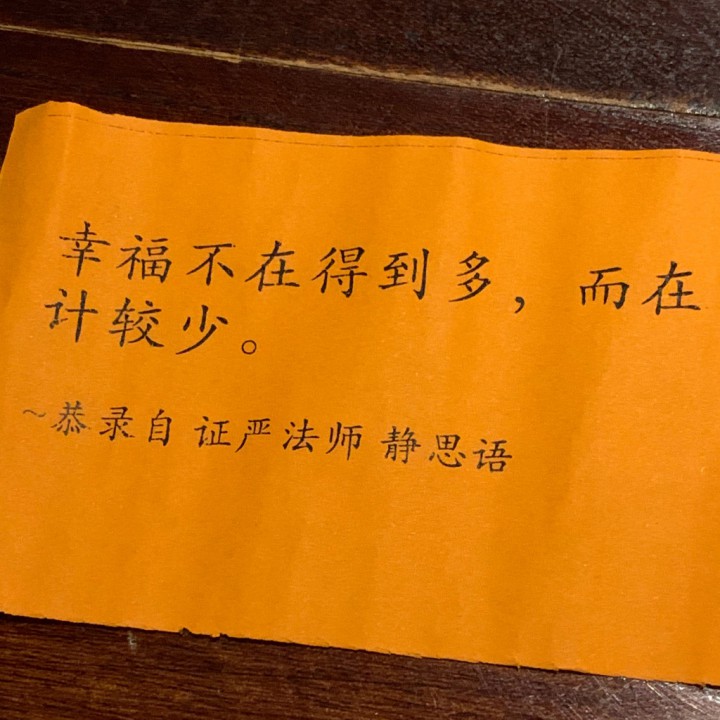 幸福不在得到多，而在
计较少。
~恭录自 证严法师 静思语